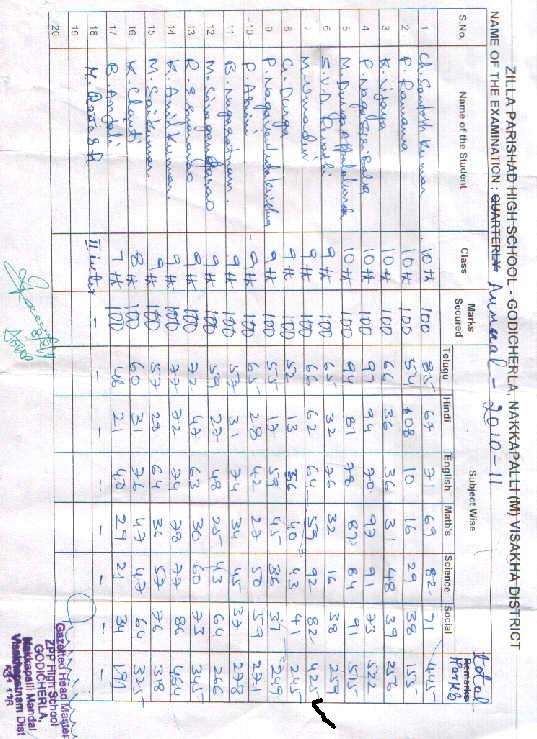 ZILLA PARISHAD HIGH SCHOOL - GODICHERLA, NAKKAPALLI (M) VISAKHA DISTRICT
NAME OF THE EXAMINATION : QUARTERLY Annual - 2010-11
S.No. Name of the Student Class Marks Secured Subject Wise Total Marks Remarks
Telugu Hindi English Math's Science Social
1 Ch. Santosh Kumar 10th 100 85 67 71 69 82 71 445
2 P. Ramana 10th 100 54 08 10 16 29 38 155
3 K. Vijaya 10th 100 66 36 36 31 48 39 256
4 P. Naga Sai Balaji 10th 100 97 94 70 97 91 73 522
5 M. Durga 10th 100 94 81 78 87 84 91 515
6 S.V.D. 9th 100 65 32 76 32 16 38 259
7 M. Umadevi 9th 100 66 62 64 59 92 82 425
8 G. Durga 9th 100 52 13 56 40 43 41 245
9 P. Nagavenkata 9th 100 55 17 59 45 36 37 249
10 P. 9th 100 65 28 42 27 50 59 271
11 B. Nagaratnam 9th 100 57 31 74 34 45 37 278
12 M. Sivaganga Rao 9th 100 59 27 48 25 43 64 266
13 R. 9th 100 72 47 63 30 60 73 345
14 K. Anil Kumar 9th 100 77 72 74 78 77 86 464
15 M. Saikumar 9th 100 57 29 64 36 76 338
16 K. Chanti 8th 100 60 31 76 47 47 64 325
17 B. Anjali 7th 100 48 21 40 29 21 34 191
18 M. II inter - - - - - - - -
19
20
Gazetted Head Master
ZPP High School
GODICHERLA,
Nakkapalli Mandal
Visakhapatnam Dist